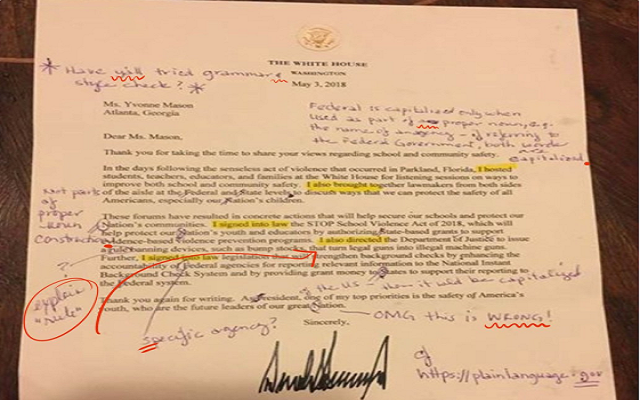 THE WHITE HOUSE
WASHINGTON
May 3, 2018
* Have y'all tried grammar &
style check? *
Ms. Yvonne Mason
Atlanta, Georgia
Federal is capitalized only when
used as part of proper noun, e.g.
the name of an agency - if referring to
the Federal Government, both words
are
capitalized.
Dear Ms. Mason,
Thank you for taking the time to share your views regarding school and community safety.
In the days following the senseless act of violence that occurred in Parkland, Florida, I hosted
students, teachers, educators, and families at the White House for listening sessions on ways to
improve both school and community safety. I also brought together lawmakers from both sides
of the aisle at the Federal and State levels to discuss ways that we can protect the safety of all
Americans, especially our Nation's children.
Not part
of
proper
noun
construction
These forums have resulted in concrete actions that will help secure our schools and protect our
Nation's communities. I signed into law the STOP School Violence Act of 2018, which will
help protect our Nation's youth and educators by authorizing State-based grants to support
evidence-based violence prevention programs. I also directed the Department of Justice to issue
a rule banning devices, such as bump stocks, that turn legal guns into illegal machine guns.
Further, I signed into law legislation that will strengthen background checks by enhancing the
accountability of Federal agencies for reporting relevant information to the National Instant
Background Check System and by providing grant money to States to support their reporting to
the Federal system.
?
explain
"rule"
the US - how it would be capitalized
Thank you again for writing. As President, one of my top priorities is the safety of America's
youth, who are the future leaders of our great Nation.
OMG this is WRONG!
specific agency?
Sincerely,
https://plainlanguage.gov